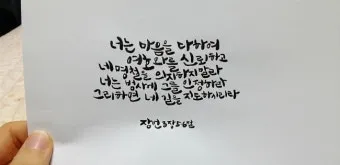 너는 마음을 다하여
여호와를 신뢰하고
네 명철을 의지하지말라
너는 범사에 그를 인정하라
그리하면 네 길을 지도하시리라
잠언 3장 5.6절